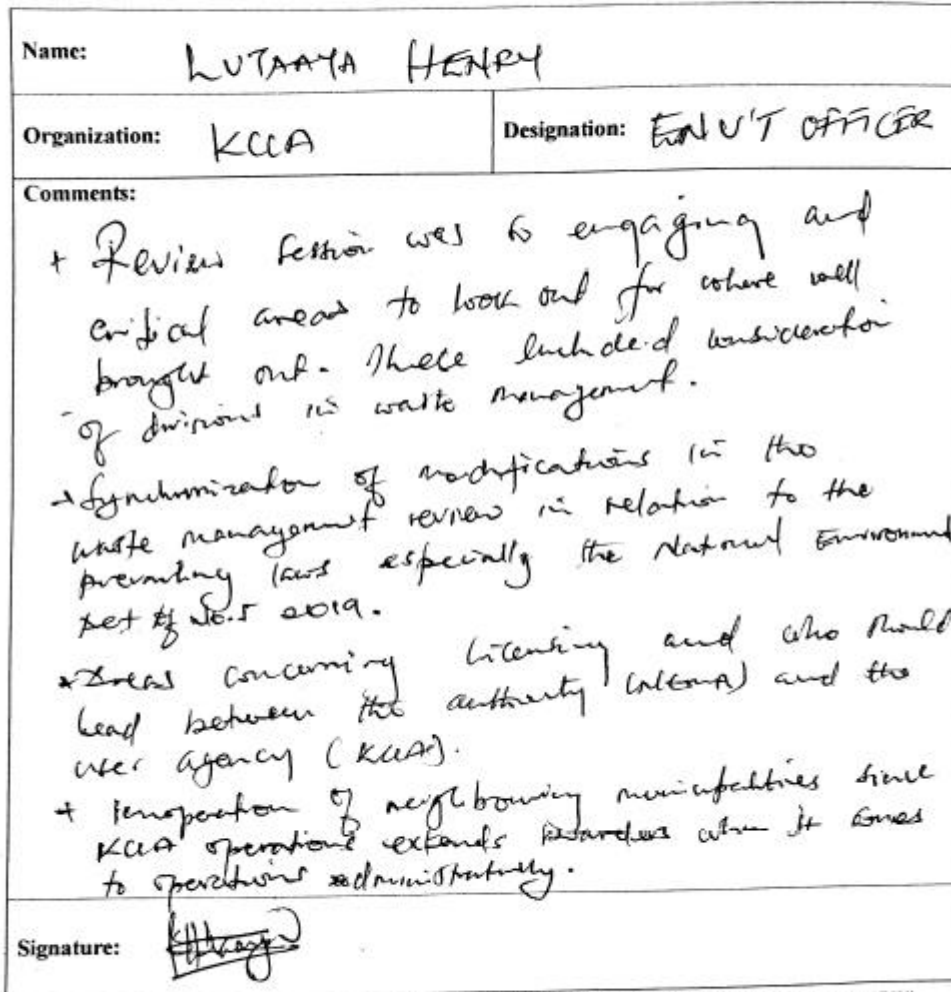 Name: LUTAAYA HENRY
Organization: KCCA Designation: ENV'T OFFICER
Comments:
+ Review Session was so engaging and
critical areas to look out for where well
brought out. These included consideration
of divisions in waste management.
+ Synchronization of modifications in the
waste management review in relation to the
prevailing laws especially the National Environment
Act No.5 2019.
* Areas concerning licensing and who should
lead between the authority (NEMA) and the
user agency (KCCA).
+ of neighbouring municipalities since
KCCA operations extends boarders when it comes
to operations administratively.
Signature: